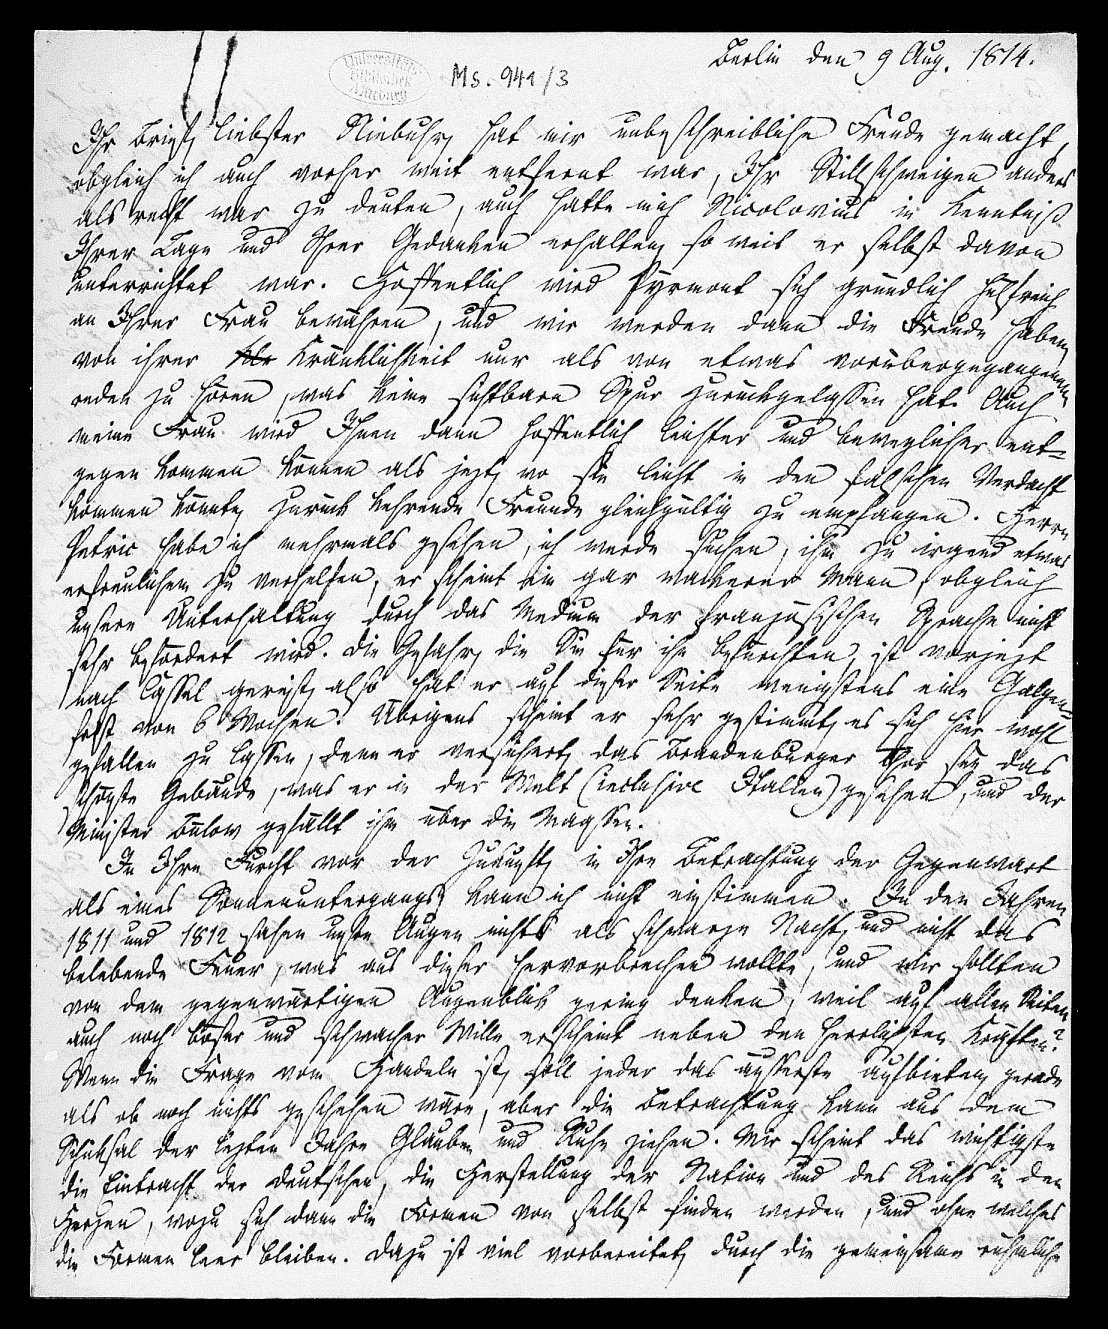 Berlin den 9 Aug. 1814.
Universitäts
Bibliothek
Marburg
Ms. 941/3
Ihr Brief, liebster Niebuhr, hat mir unbeschreibliche Freude gemacht,
obgleich ich auch vorher weit entfernt war, Ihr Stillschweigen anders
als recht war zu deuten, auch hatte mich Nicolovius in Kenntniß
Ihrer Lage und Ihrer Gedanken erhalten, so weit er selbst davon
unterrichtet war. Hoffentlich wird Pyrmont sich gründlich hülfreich
an Ihrer Frau bewähren, und wir werden dann die Freude haben,
von ihrer Kränklichkeit nur als von etwas vorübergegangenem
reden zu hören, was keine sichtbare Spur zurückgelassen hat. Auch
meine Frau wird Ihnen dann hoffentlich leichter und beweglicher ent-
gegen kommen können als jezt, wo sie leicht in den falschen Verdacht
kommen könnte, zurück kehrende Freunde gleichgültig zu empfangen. Herrn
Petric habe ich mehrmals gesehen, ich werde suchen, ihm zu irgend etwas
erfreulichem zu verhelfen, er scheint ein gar wackerer Mann, obgleich
unsere Unterhaltung durch das Medium der französischen Sprache nicht
sehr befördert wird. Die Gefahr, die Sie für ihn befürchten, ist vorjezt
nach Cassel gereist, also hat er auf dieser Seite wenigstens eine Galgen-
frist von 6 Wochen. Übrigens scheint er sehr gestimmt, es sich hier wohl
gefallen zu lassen, denn er versichert, das Brandenburger Thor sey das
schönste Gebäude, was er in der Welt (inclusive Italien) gesehen, und der
Minister Bülow gefällt ihm über die Maassen.
In Ihre Furcht vor der Zukunft, in Ihre Betrachtung der Gegenwart
als eines Sonnenuntergangs, kann ich nicht einstimmen. In den Jahren
1811 und 1812 sahen unsre Augen nichts als schwarze Nacht, und nicht das
belebende Feuer, was aus dieser hervorbrechen wollte, und wir sollten
von dem gegenwärtigen Augenblik gering denken, weil auf allen Seiten
auch noch böser und schwacher Wille erscheint neben den herrlichsten Kräften?
Wenn die Frage vom Handeln ist, soll jeder das äusserste aufbieten, gerade
als ob noch nichts geschehen wäre, aber die Betrachtung kann aus dem
Schiksal der lezten Jahre Glauben und Ruhe ziehen. Mir scheint das wichtigste
die Eintracht der Deutschen, die Herstellung der Nation und des Reichs in den
Herzen, wozu sich dann die Formen von selbst finden werden, und ohne welches
die Formen leer bleiben. Dazu ist viel vorbereitet, durch die gemeinsame rühmliche